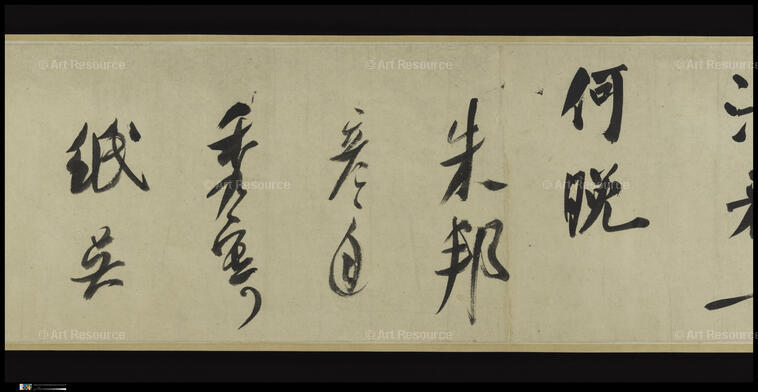 何晚
朱邦
彥自
秀寄
紙吳
© Art Resource
© Art Resource
© Art Resource
© Art Resource
© Art Resource
© Art Resource
© Art Resource